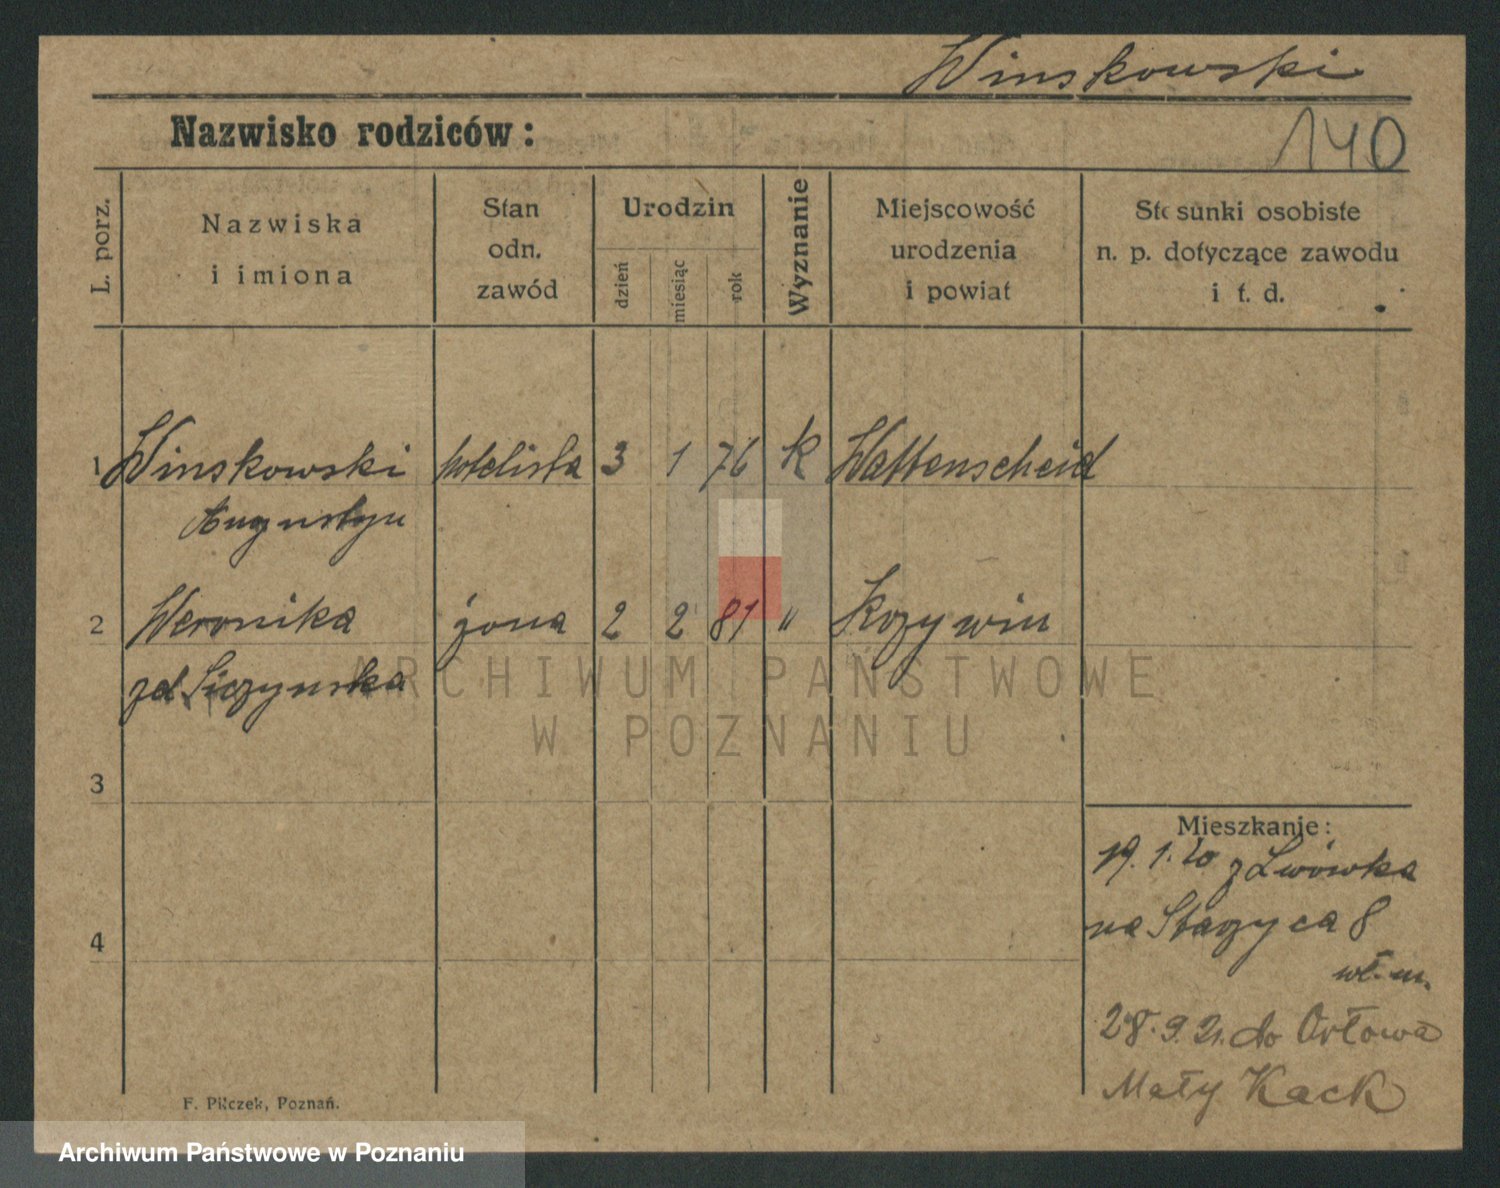 Winskowski
Nazwisko rodziców:
140
L. porz.
Nazwiska
i imiona
Stan
odn.
zawód
Urodzin
dzień
miesiąc
rok
Wyznanie
Miejscowość
urodzenia
i powiat
Stosunki osobiste
n. p. dotyczące zawodu
i t. d.
1 Winskowski hotelista 3 1 76 k Wattenscheid
Augustyn
2 Weronika żona 2 2 81 " Krzywin
zd Siczynska
ARCHIWUM PAŃSTWOWE
W POZNANIU
3
4
Mieszkanie:
19.1.20 z Lwówka
na Staszyca 8
wł. m.
28.9.21. do Orłowa
Mały Kack
F. Pilczek, Poznań.
Archiwum Państwowe w Poznaniu